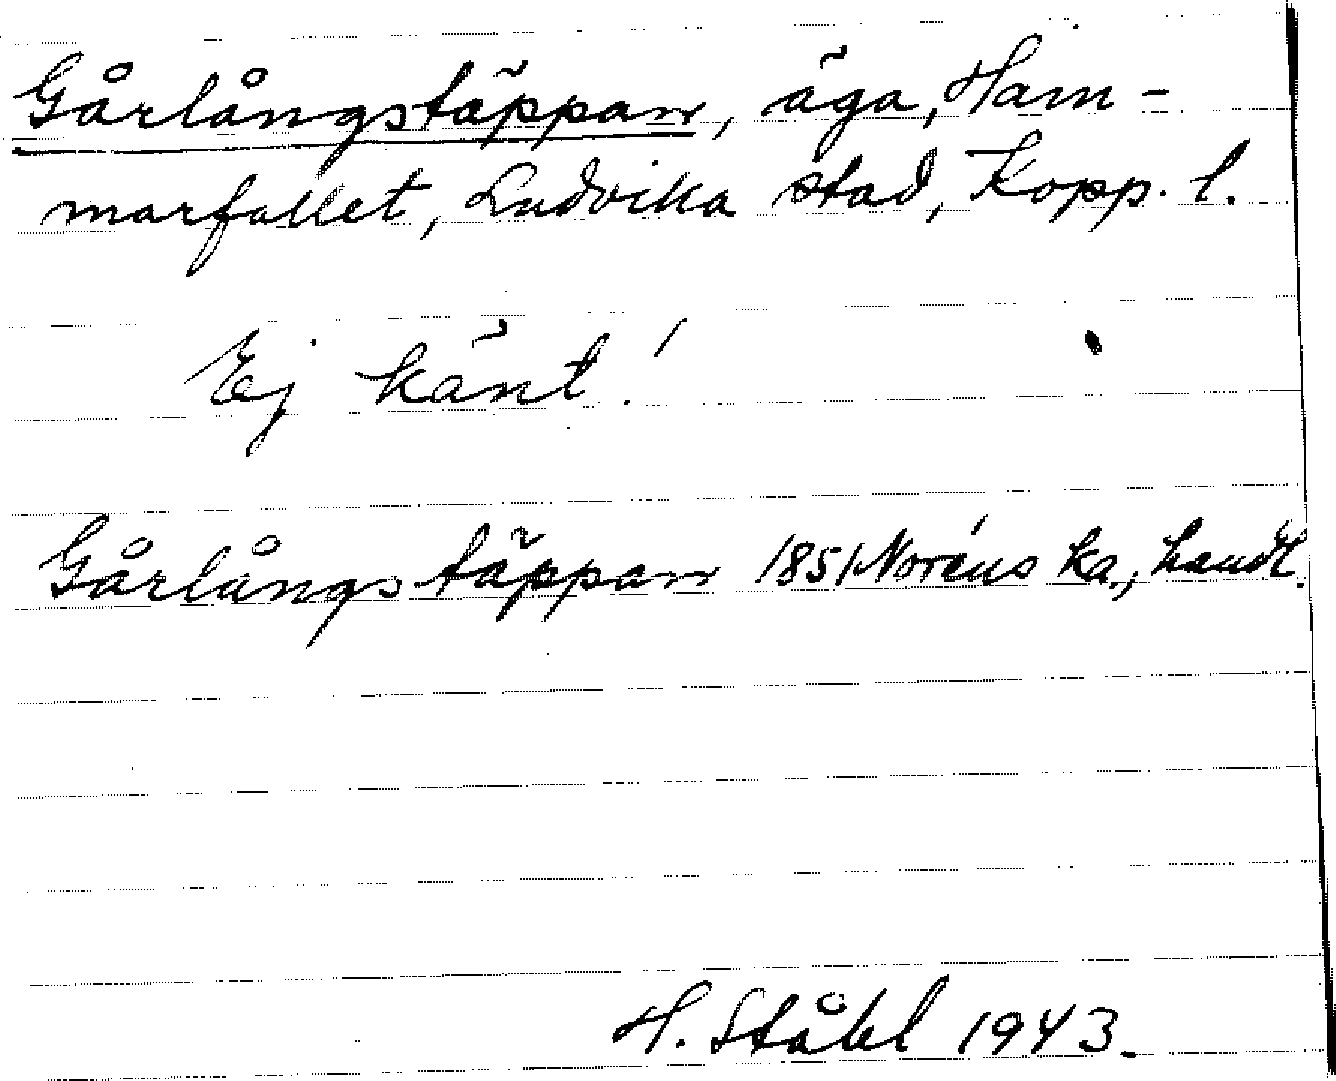 Gårlångstäppan, äga, Ham-
marfallet, Ludvika stad, Kopp. l.
Ej känt!
Gårlångstäppan 1851 Noréns ka., handl.
H. Ståhl 1943.